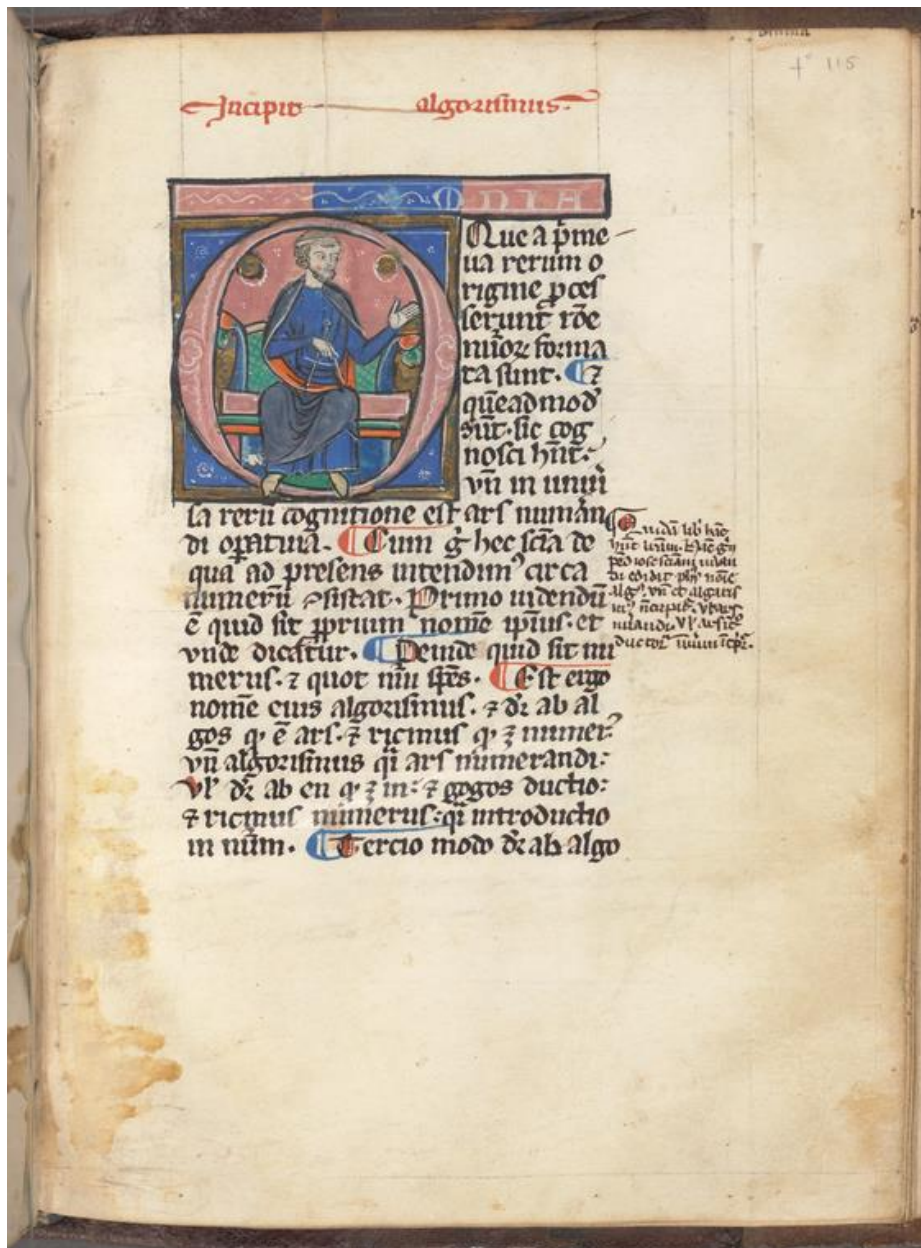 Incipit algorismus.
OMNIA
Que a pͥme
ua rerum o
rigine ꝓces
serunt rōe
nūorꝝ forma
ta sunt. ⁊
quēadmod᷒
sūt. sic cog
nosci hn̄t.
vn̄ in uniuͥ
sa rerū cognitione est ars numan
di oꝑatiua. Cum gͥ hec scīa de
qua ad presens intendimꝰ circa
numerū ꝯsistat. Primo uidendū
ē quid sit ꝓprium nomē ipīus. et
vnde dicatur. Deinde quid sit nu
merus. ⁊ quot nūi sp̄es. Est ergo
nomē eius algorismus. ⁊ dr̄ ab al
gos q. ē ars. ⁊ ricmus q. ꝫ numerꝰ.
vn̄ algorismus qͣi ars numerandi.
Vl̓ dr̄ ab en q. ꝫ in. ⁊ gogos ductio.
⁊ ricmus numerus. qͣi introductio
in nūm. Tercio modo dr̄ ab algo
f° 115